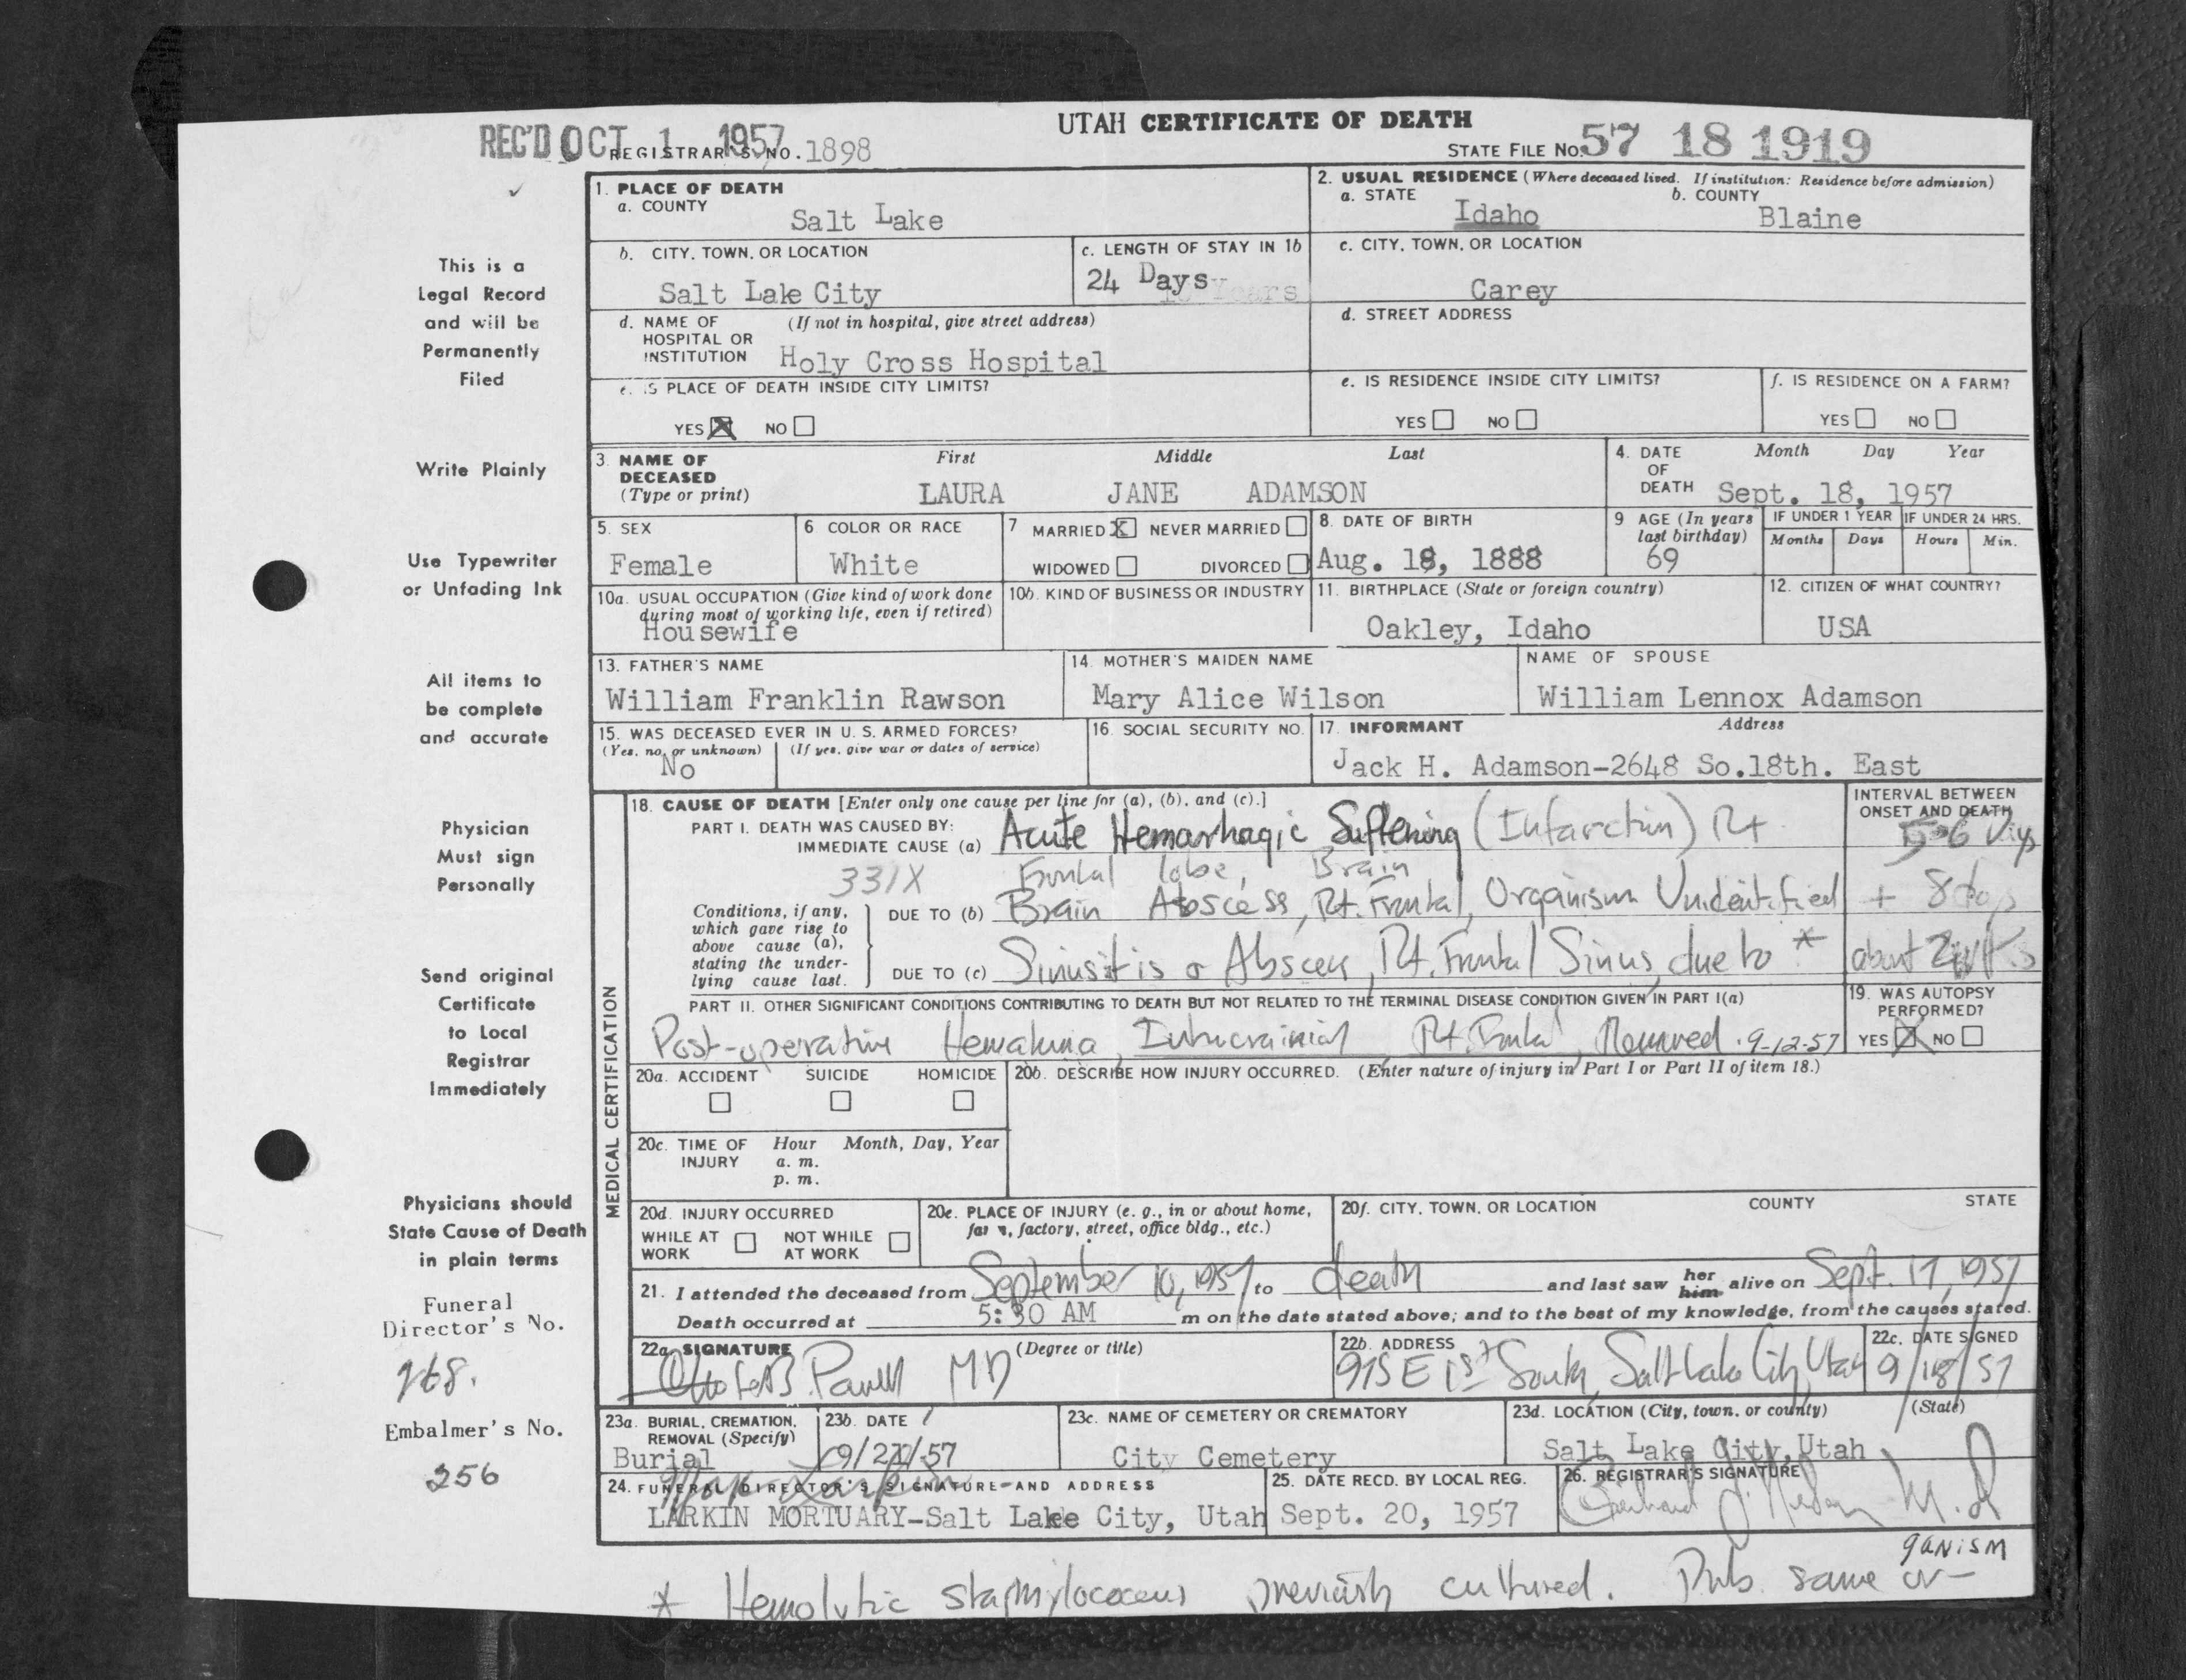 UTAH CERTIFICATE OF DEATH
REC'D OCT 1 1957 REGISTRAR'S NO. 1898
STATE FILE No. 57 18 1919
1. PLACE OF DEATH
a. COUNTY
Salt Lake
2. USUAL RESIDENCE (Where deceased lived. If institution: Residence before admission)
a. STATE b. COUNTY
Idaho Blaine
b. CITY, TOWN, OR LOCATION
Salt Lake City
c. LENGTH OF STAY IN 1b
24 Days
c. CITY, TOWN, OR LOCATION
Carey
d. NAME OF HOSPITAL OR INSTITUTION (If not in hospital, give street address)
Holy Cross Hospital
d. STREET ADDRESS
e. IS PLACE OF DEATH INSIDE CITY LIMITS?
YES X NO
e. IS RESIDENCE INSIDE CITY LIMITS?
YES NO
f. IS RESIDENCE ON A FARM?
YES NO
3. NAME OF DECEASED (Type or print)
First Middle Last
LAURA JANE ADAMSON
4. DATE OF DEATH
Month Day Year
Sept. 18, 1957
5. SEX
Female
6 COLOR OR RACE
White
7 MARRIED X NEVER MARRIED
WIDOWED DIVORCED
8. DATE OF BIRTH
Aug. 18, 1888
9 AGE (In years last birthday)
69
IF UNDER 1 YEAR
Months Days
IF UNDER 24 HRS.
Hours Min.
10a. USUAL OCCUPATION (Give kind of work done during most of working life, even if retired)
Housewife
10b. KIND OF BUSINESS OR INDUSTRY
11. BIRTHPLACE (State or foreign country)
Oakley, Idaho
12. CITIZEN OF WHAT COUNTRY?
USA
13. FATHER'S NAME
William Franklin Rawson
14. MOTHER'S MAIDEN NAME
Mary Alice Wilson
NAME OF SPOUSE
William Lennox Adamson
15. WAS DECEASED EVER IN U. S. ARMED FORCES?
(Yes, no, or unknown) (If yes, give war or dates of service)
No
16. SOCIAL SECURITY NO.
17. INFORMANT Address
Jack H. Adamson-2648 So.18th. East
MEDICAL CERTIFICATION
18. CAUSE OF DEATH [Enter only one cause per line for (a), (b), and (c).]
INTERVAL BETWEEN ONSET AND DEATH
PART I. DEATH WAS CAUSED BY:
IMMEDIATE CAUSE (a) Acute Hemorrhagic Softening (Infarction) Rt
331X Frontal lobe, Brain
Conditions, if any, which gave rise to above cause (a), stating the underlying cause last.
DUE TO (b) Brain Abscess, Rt. Frontal, Organism Unidentified
DUE TO (c) Sinusitis or Abscess, Rt. Frontal Sinus, due to * about
PART II. OTHER SIGNIFICANT CONDITIONS CONTRIBUTING TO DEATH BUT NOT RELATED TO THE TERMINAL DISEASE CONDITION GIVEN IN PART I(a)
Post-operative Hematuma, Intracrainial Rt. Frontal, Removed. 9-12-57
19. WAS AUTOPSY PERFORMED?
YES X NO
20a. ACCIDENT SUICIDE HOMICIDE
20b. DESCRIBE HOW INJURY OCCURRED. (Enter nature of injury in Part I or Part II of item 18.)
20c. TIME OF INJURY Hour Month, Day, Year
a. m.
p. m.
20d. INJURY OCCURRED
WHILE AT WORK NOT WHILE AT WORK
20e. PLACE OF INJURY (e. g., in or about home, farm, factory, street, office bldg., etc.)
20f. CITY, TOWN, OR LOCATION COUNTY STATE
21. I attended the deceased from September 10, 1957 to death and last saw her him alive on Sept. 17, 1957
Death occurred at 5:30 AM m on the date stated above; and to the best of my knowledge, from the causes stated.
22a. SIGNATURE (Degree or title)
MD
22b. ADDRESS
915 E 1st South, Salt Lake City, Utah
22c. DATE SIGNED
9/18/57
23a. BURIAL, CREMATION, REMOVAL (Specify)
Burial
23b. DATE
23c. NAME OF CEMETERY OR CREMATORY
City Cemetery
23d. LOCATION (City, town, or county) (State)
Salt Lake City, Utah
24. FUNERAL DIRECTOR'S SIGNATURE AND ADDRESS
LARKIN MORTUARY-Salt Lake City, Utah
25. DATE RECD. BY LOCAL REG.
Sept. 20, 1957
26. REGISTRAR'S SIGNATURE
M.D
* Hemolytic staphylococcus previously cultured. Prob. same or-
ganism
This is a
Legal Record
and will be
Permanently
Filed
Write Plainly
Use Typewriter
or Unfading Ink
All items to
be complete
and accurate
Physician
Must sign
Personally
Send original
Certificate
to Local
Registrar
Immediately
Physicians should
State Cause of Death
in plain terms
Funeral
Director's No.
268.
Embalmer's No.
256